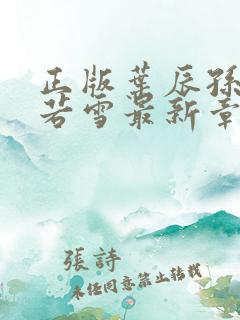 正版葉辰孫
若雪最新章
張詩
未经同意禁止转载